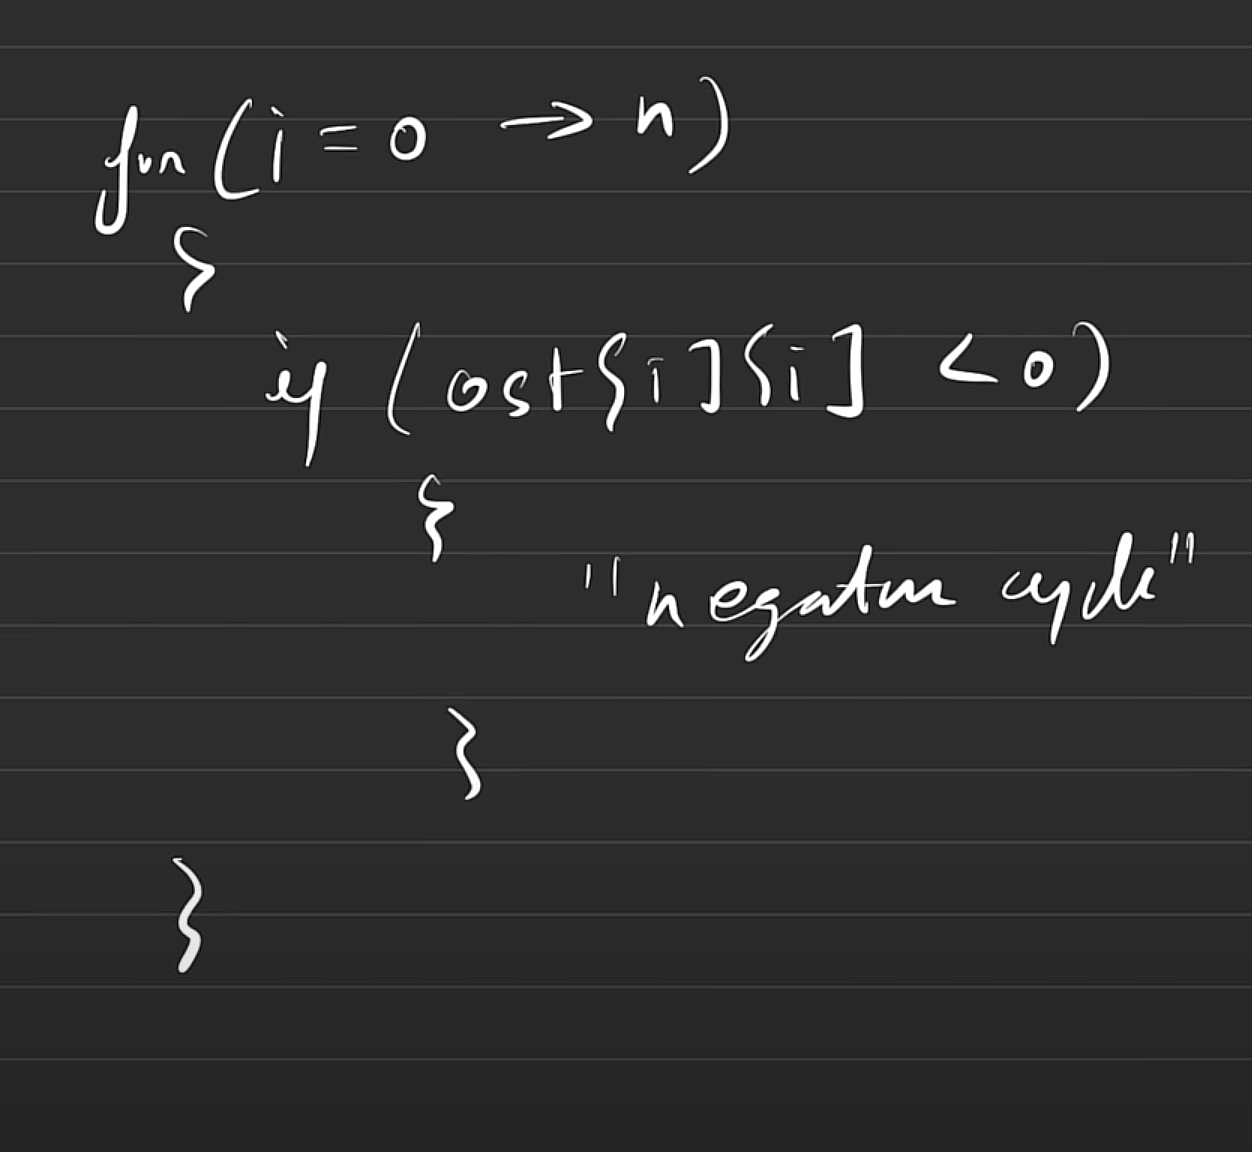 for(i=0 → n)
{
if (cost[i][i] <0)
{
"negative cycle"
}
}